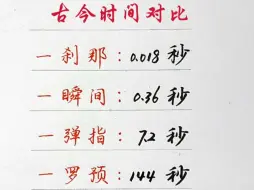 古今时间对比
一刹那：0.018秒
一瞬间：0.36秒
一弹指：7.2秒
一罗预：144秒